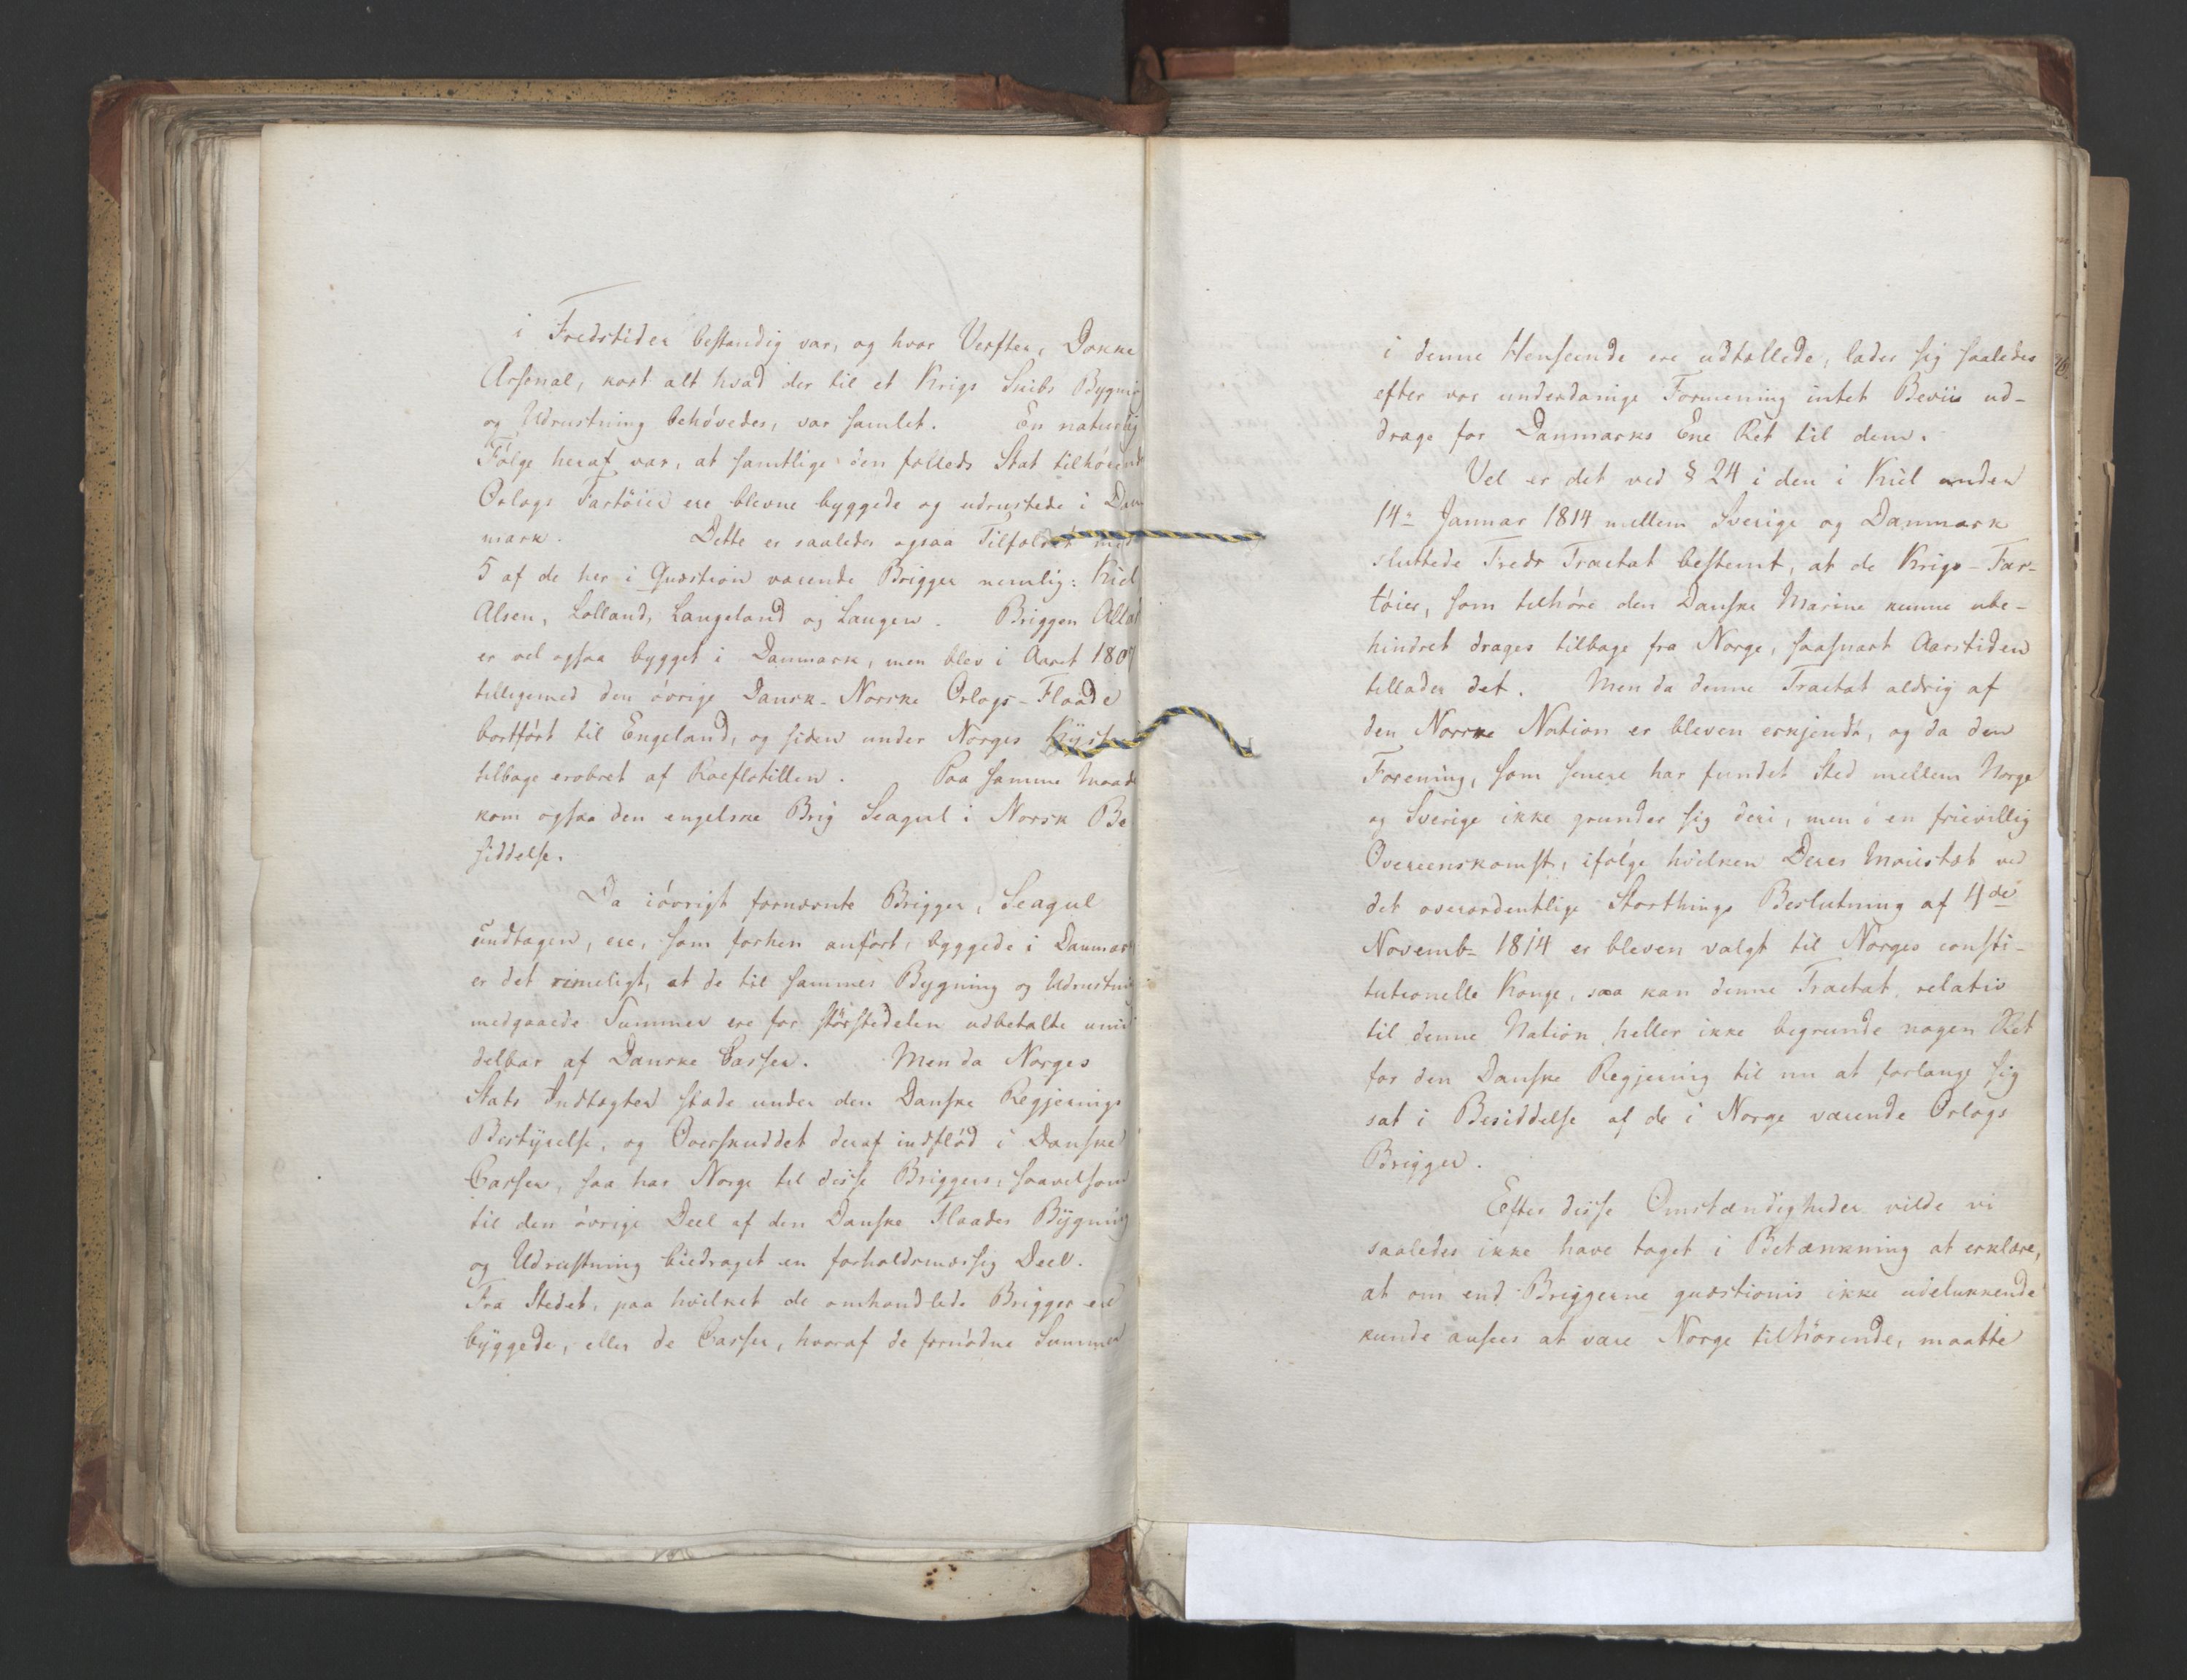 i Fredstider bestandig var, og hvor Verfter, Dokke
Arsenal, kort alt hvad der til et Krigs Skibs Bygnin
og Udrustning behövedes, var samlet. En naturlig
Fölge heraf var, at samtlige den felleds Stat tilhörende
Orlogs Fartöier ere blevne byggede og udrustede i Dan
mark. Dette er saaledes ogsaa Tilfældet med
5 af de her i Quæstion værende Brigger nemlig: Kiel
Alsen, Lolland, Langeland og Laugen. Briggen Allar
er vel ogsaa bygget i Danmark, men blev i Aaret 1807
tilligemed den övrige Dansk-Norske Orlogs-Flaade
bortfört til Engeland, og siden under Norges Kyst
tilbage erobret af Roeflotillen. Paa samme Maade
kom ogsaa den engelske Brig Seagul i Norsk Be
siddelse.
Da iövrigt fornævnte Brigger, Seagul
undtagen, ere, som forhen anfört, byggede i Danmark
er det rimeligt, at de til sammes Bygning og Udrustni
medgaaede Summer ere for störstedelen udbetalte umid
delbar af Danske Casser. Men da Norges
Stats Indtægter stode under den Danske Regjerings
Bestyrelse, og Overskuddet deraf indflöd i Danske
Casser, saa har Norge til disse Briggers, saavelsom
til den övrige Deel af den Danske Flaades Bygning
og Udrustning biedraget en forholdsmæssig Deel.
Fra Stedet, paa hvilket de omhandlede Brigger ere
byggede, eller de Casser, hvoraf de fornödne Summer
i denne Henseende ere udtællede, lader sig saaledes
efter vor underdanige Formening intet Beviis ud-
drage for Danmarks Ene Ret til dem.
Vel er det ved § 24 i den i Kiel under
14de Januar 1814 mellem Sverige og Danmark
sluttede Freds Tractat bestemt, at de Krigs-Far-
töier, som tilhöre den Danske Marine kunne ube-
hindret drages tilbage fra Norge, saasnart Aarstiden
tillader det. Men da denne Tractat aldrig af
den Norske Nation er bleven erkjendt, og da den
Forening, som senere har fundet Sted mellem Norge
og Sverige ikke grunder sig deri, men i en frievillig
Overeenskomst, ifölge hvilken Deres Maiestæt ved
det overordentlige Storthings Beslutning af 4de
Novembr 1814 er bleven valgt til Norges consti-
tutionelle Konge, saa kan denne Tractat, relativ
til denne Nation, heller ikke begrunde nogen Ret
for den Danske Regjering til nu at forlange sig
sat i Besiddelse af de i Norge værende Orlogs
Brigger.
Efter disse Omstændigheder vilde vi
saaledes ikke have taget i Betænkning at erklære,
at om end Briggerne quæstionis ikke udelukkende
kunde ansees at være Norge tilhörende, maatte